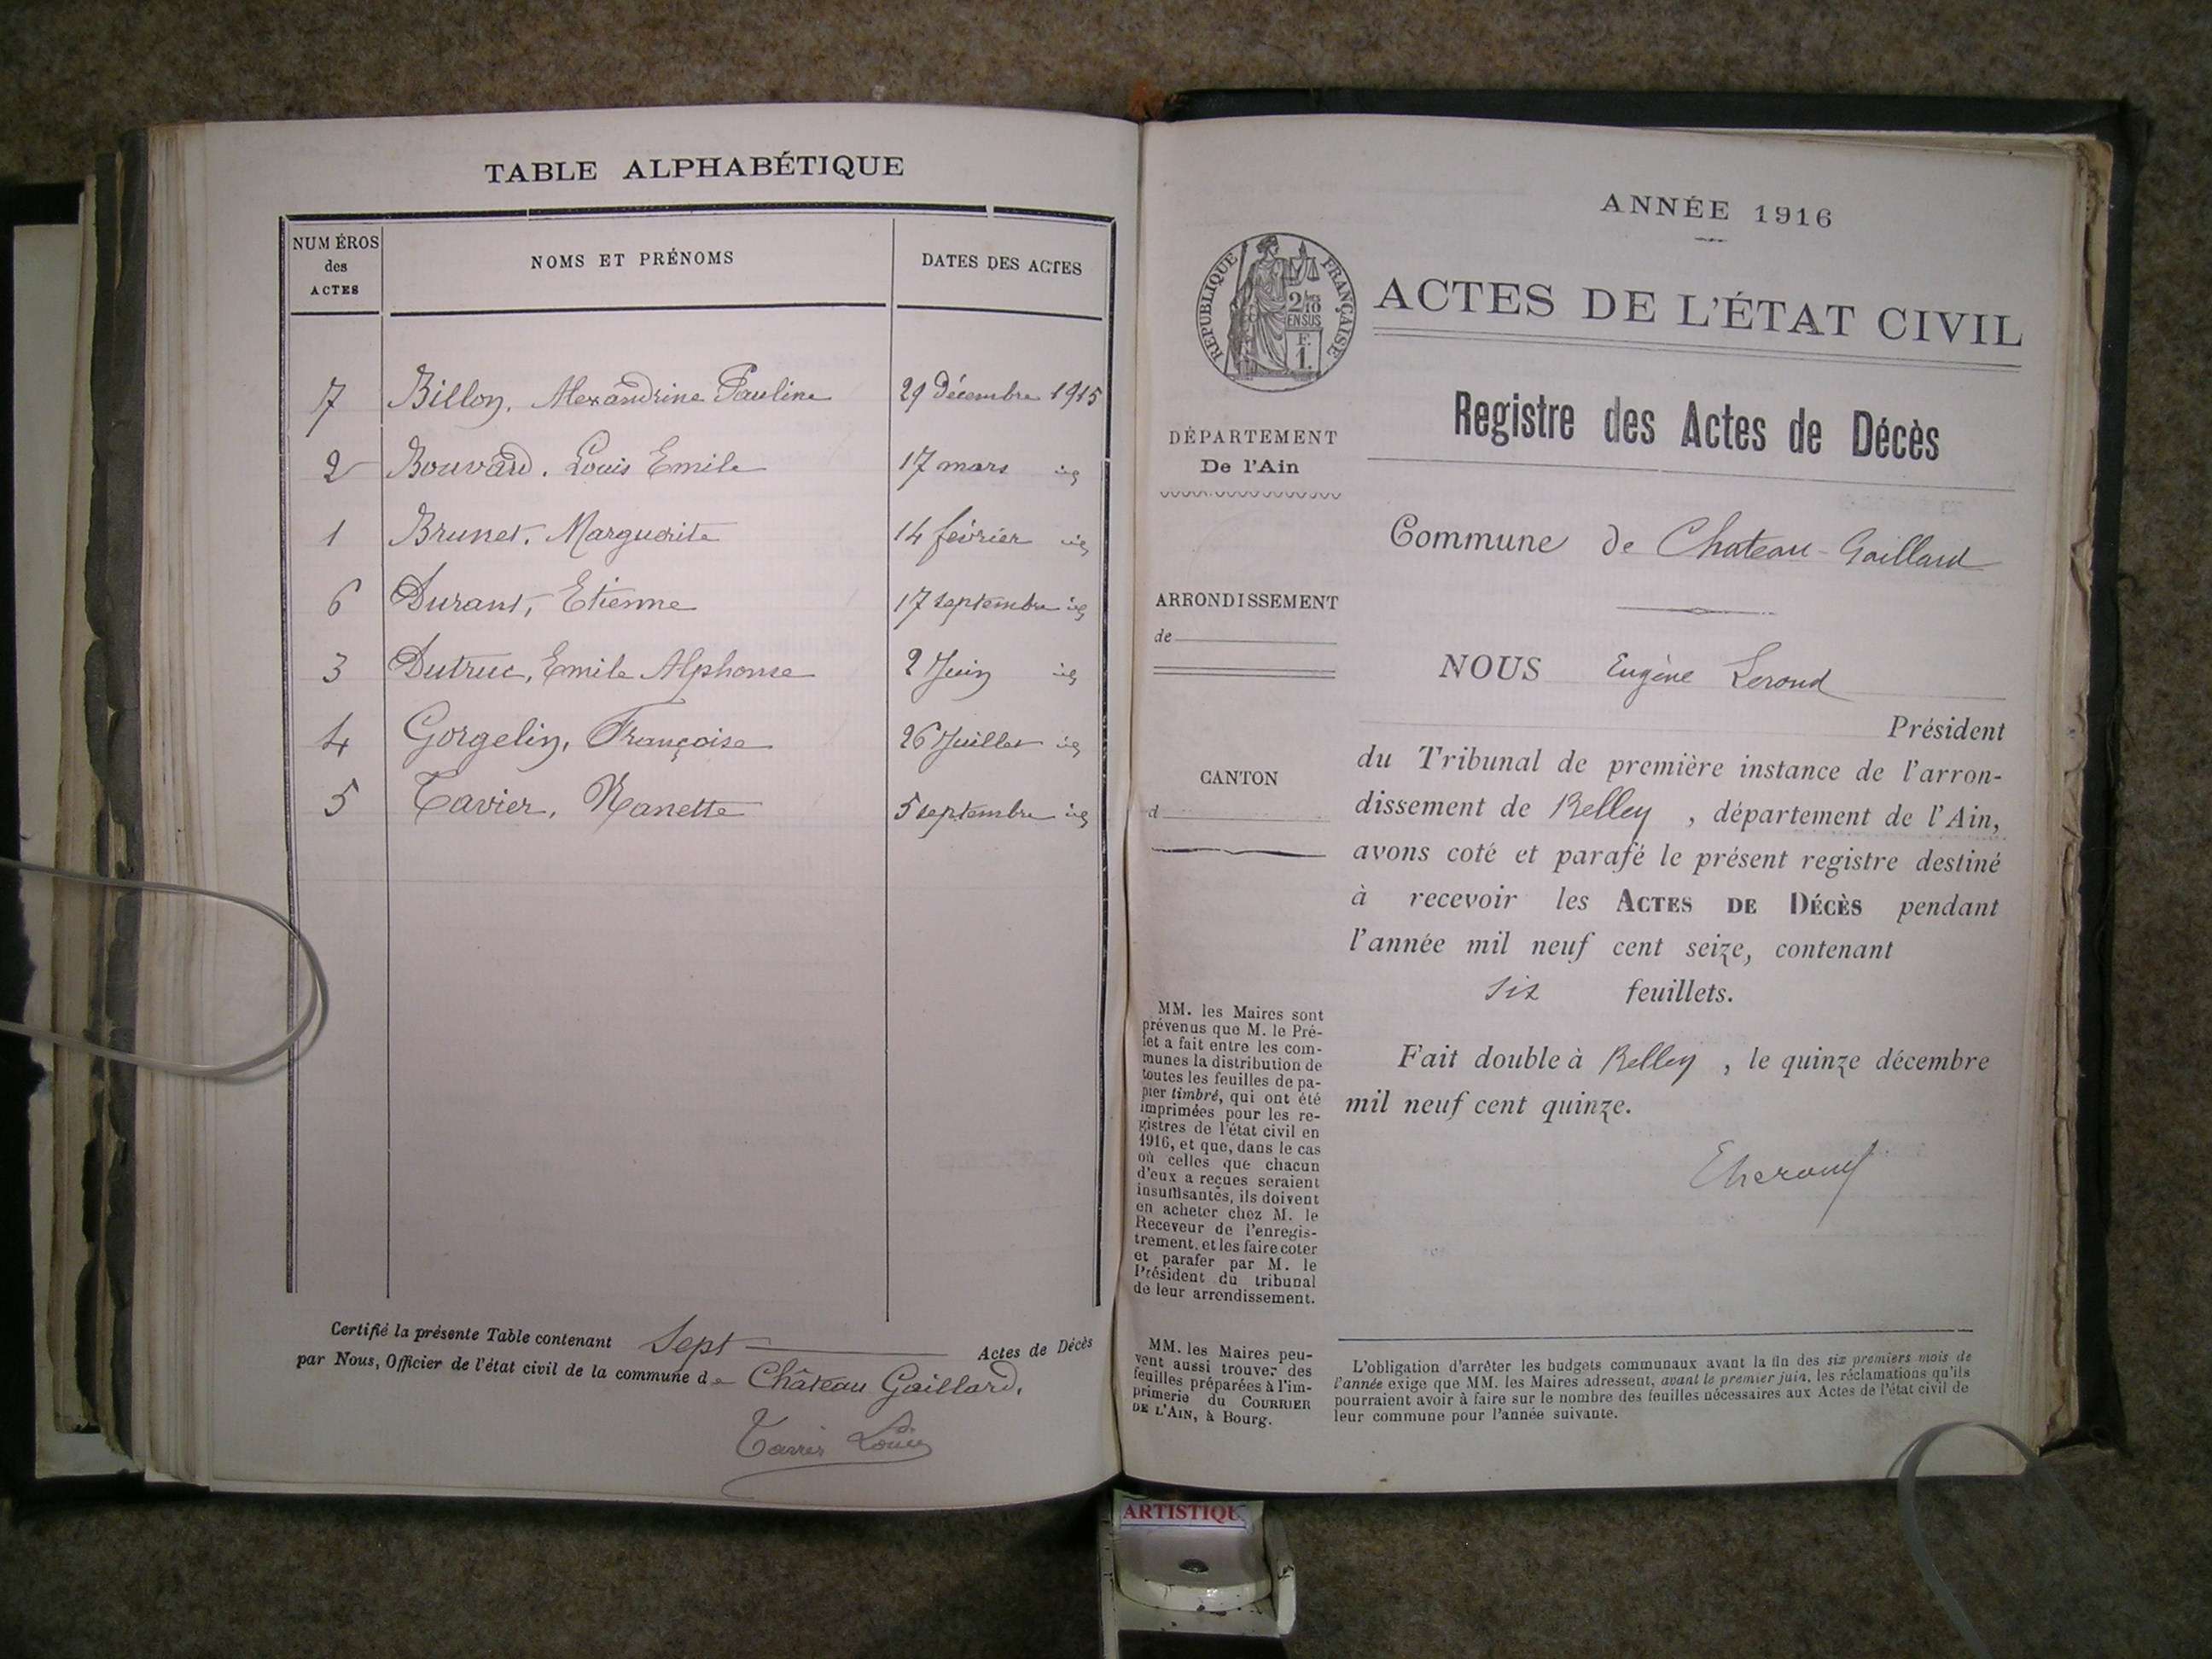 TABLE ALPHABÉTIQUE
NUMÉROS des ACTES NOMS ET PRÉNOMS DATES DES ACTES
7 Billon, Alexandrine Pauline 29 Décembre 1915
2 Bouvard, Louis Emile 17 mars id
1 Brunet, Marguerite 14 février id
6 Durant, Etienne 17 septembre id
3 Dutruc, Emile Alphonse 2 Juin id
4 Gorgelin, Françoise 26 Juillet id
5 Tavier, Nanette 5 septembre id
Certifié la présente Table contenant Sept Actes de Décès
par Nous, Officier de l'état civil de la commune de Château Gaillard,
ANNÉE 1916
RÉPUBLIQUE FRANÇAISE
2/10
EN SUS
F.
1.
ACTES DE L'ÉTAT CIVIL
Registre des Actes de Décès
DÉPARTEMENT
De l'Ain
ARRONDISSEMENT
de
CANTON
d
MM. les Maires sont
prévenus que M. le Pré-
fet a fait entre les com-
munes la distribution de
toutes les feuilles de pa-
pier timbré, qui ont été
imprimées pour les re-
gistres de l'état civil en
1916, et que, dans le cas
où celles que chacun
d'eux a reçues seraient
insuffisantes, ils doivent
en acheter chez M. le
Receveur de l'enregis-
trement, et les faire coter
et parafer par M. le
Président du tribunal
de leur arrondissement.
MM. les Maires peu-
vent aussi trouver des
feuilles préparées à l'im-
primerie du COURRIER
DE L'AIN, à Bourg.
Commune de Chateau-Gaillard
NOUS Eugène Lerond
Président
du Tribunal de première instance de l'arron-
dissement de Belley, département de l'Ain,
avons coté et parafé le présent registre destiné
à recevoir les ACTES DE DÉCÈS pendant
l'année mil neuf cent seize, contenant
six feuillets.
Fait double à Belley, le quinze décembre
mil neuf cent quinze.
L'obligation d'arrêter les budgets communaux avant la fin des six premiers mois de
l'année exige que MM. les Maires adressent, avant le premier juin, les réclamations qu'ils
pourraient avoir à faire sur le nombre des feuilles nécessaires aux Actes de l'état civil de
leur commune pour l'année suivante.
ARTISTIQU